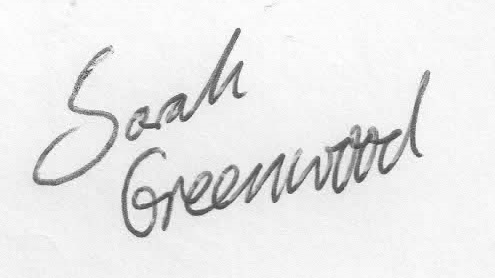 Sarah
Greenwood